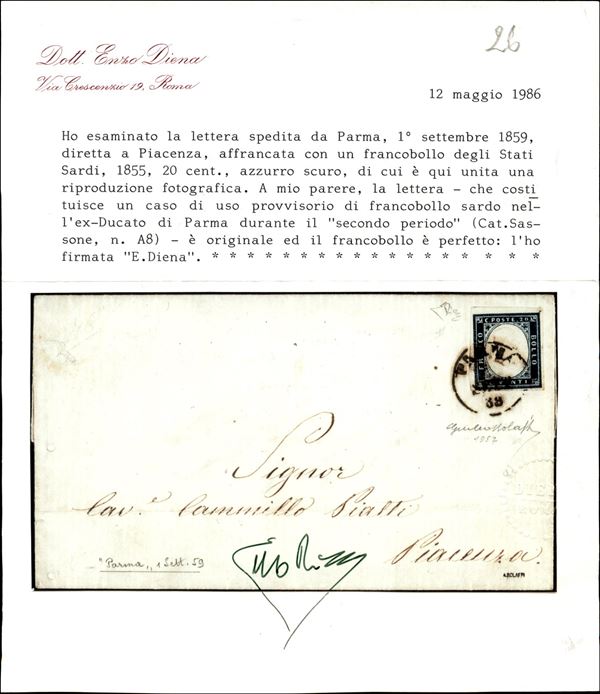 26
Dott. Enzo Diena
Via Crescenzio 19, Roma
12 maggio 1986
Ho esaminato la lettera spedita da Parma, 1° settembre 1859,
diretta a Piacenza, affrancata con un francobollo degli Stati
Sardi, 1855, 20 cent., azzurro scuro, di cui è qui unita una
riproduzione fotografica. A mio parere, la lettera - che costi
tuisce un caso di uso provvisorio di francobollo sardo nel-
l'ex-Ducato di Parma durante il "secondo periodo" (Cat.Sas-
sone, n. A8) - è originale ed il francobollo è perfetto: l'ho
firmata "E.Diena". * * * * * * * * * * * * * * * * * * *
C. POSTE 20
BOLLO
FRANCO
Signor
Cav.e Cammillo Pialti
Piacenza.
"Parma„ 1 Sett. 59
A.BOLAFFI